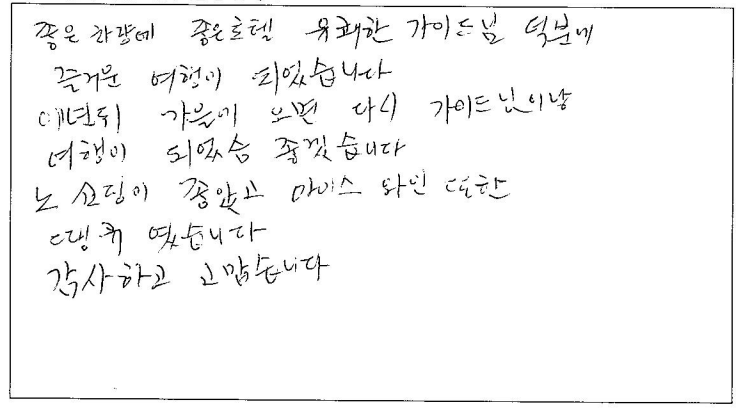 좋은 차량에 좋은호텔 유쾌한 가이드님 덕분에
즐거운 여행이 되었습니다
가을에 오면 다시 가이드님이랑
여행이 되었슴 좋겠습니다
노 쇼핑이 좋았고 아이스 와인 또한
땡큐 였습니다
감사하고 고맙습니다